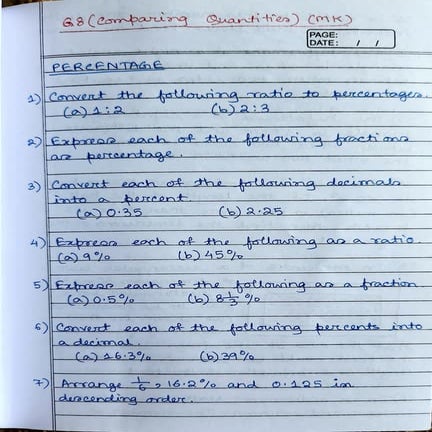 G8 (Comparing Quantities) (MK)
PAGE:
DATE: / /
PERCENTAGE
1) Convert the following ratio to percentages.
(a) 1:2 (b) 2:3
2) Express each of the following fractions
as percentage.
3) Convert each of the following decimals
into a percent
(a) 0.35 (b) 2.25
4) Express each of the following as a ratio.
(a) 9% (b) 45%
5) Express each of the following as a fraction
(a) 0.5% (b) 8 1/3 %
6) Convert each of the following percents into
a decimal.
(a) 16.3% (b) 39%
7) Arrange 1/6, 16.2% and 0.125 in
descending order.